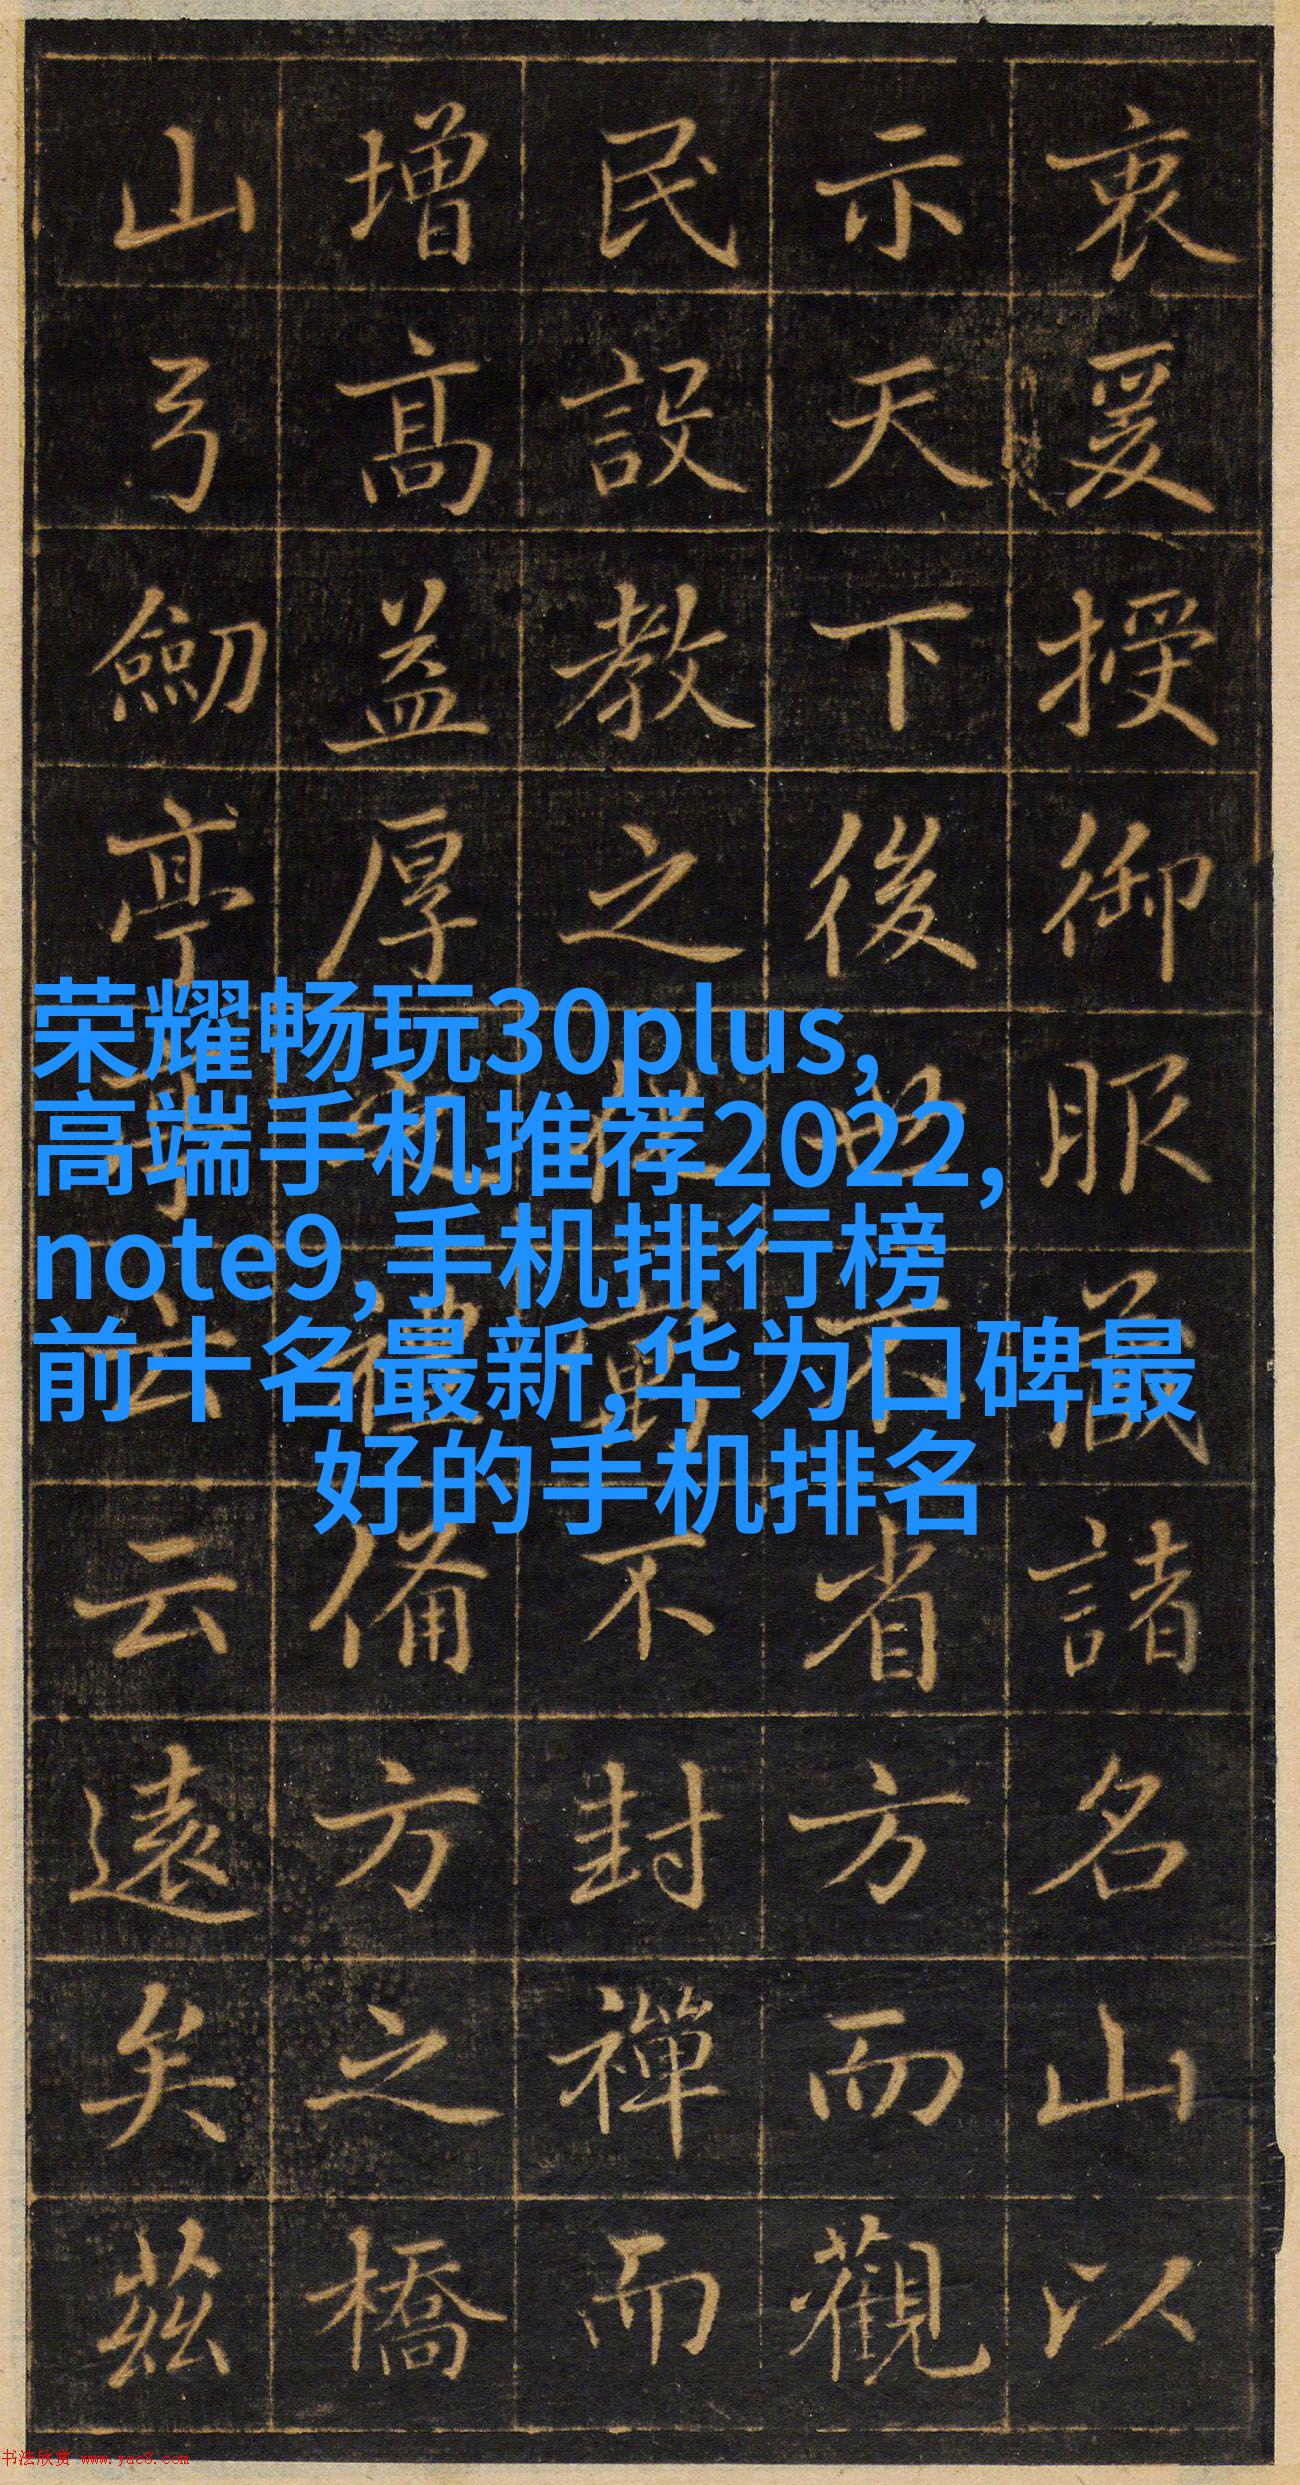 衷爰授御服藏諸名山以
示天下後世不省方而觀
民設教之不封禪而
增高益厚之禮備方之橋
山弓劒亭亭云云遠矣茲
荣耀畅玩30plus,
高端手机推荐2022,
note9,手机排行榜
前十名最新,华为口碑最
好的手机排名
书法欣赏 www.yac8.com